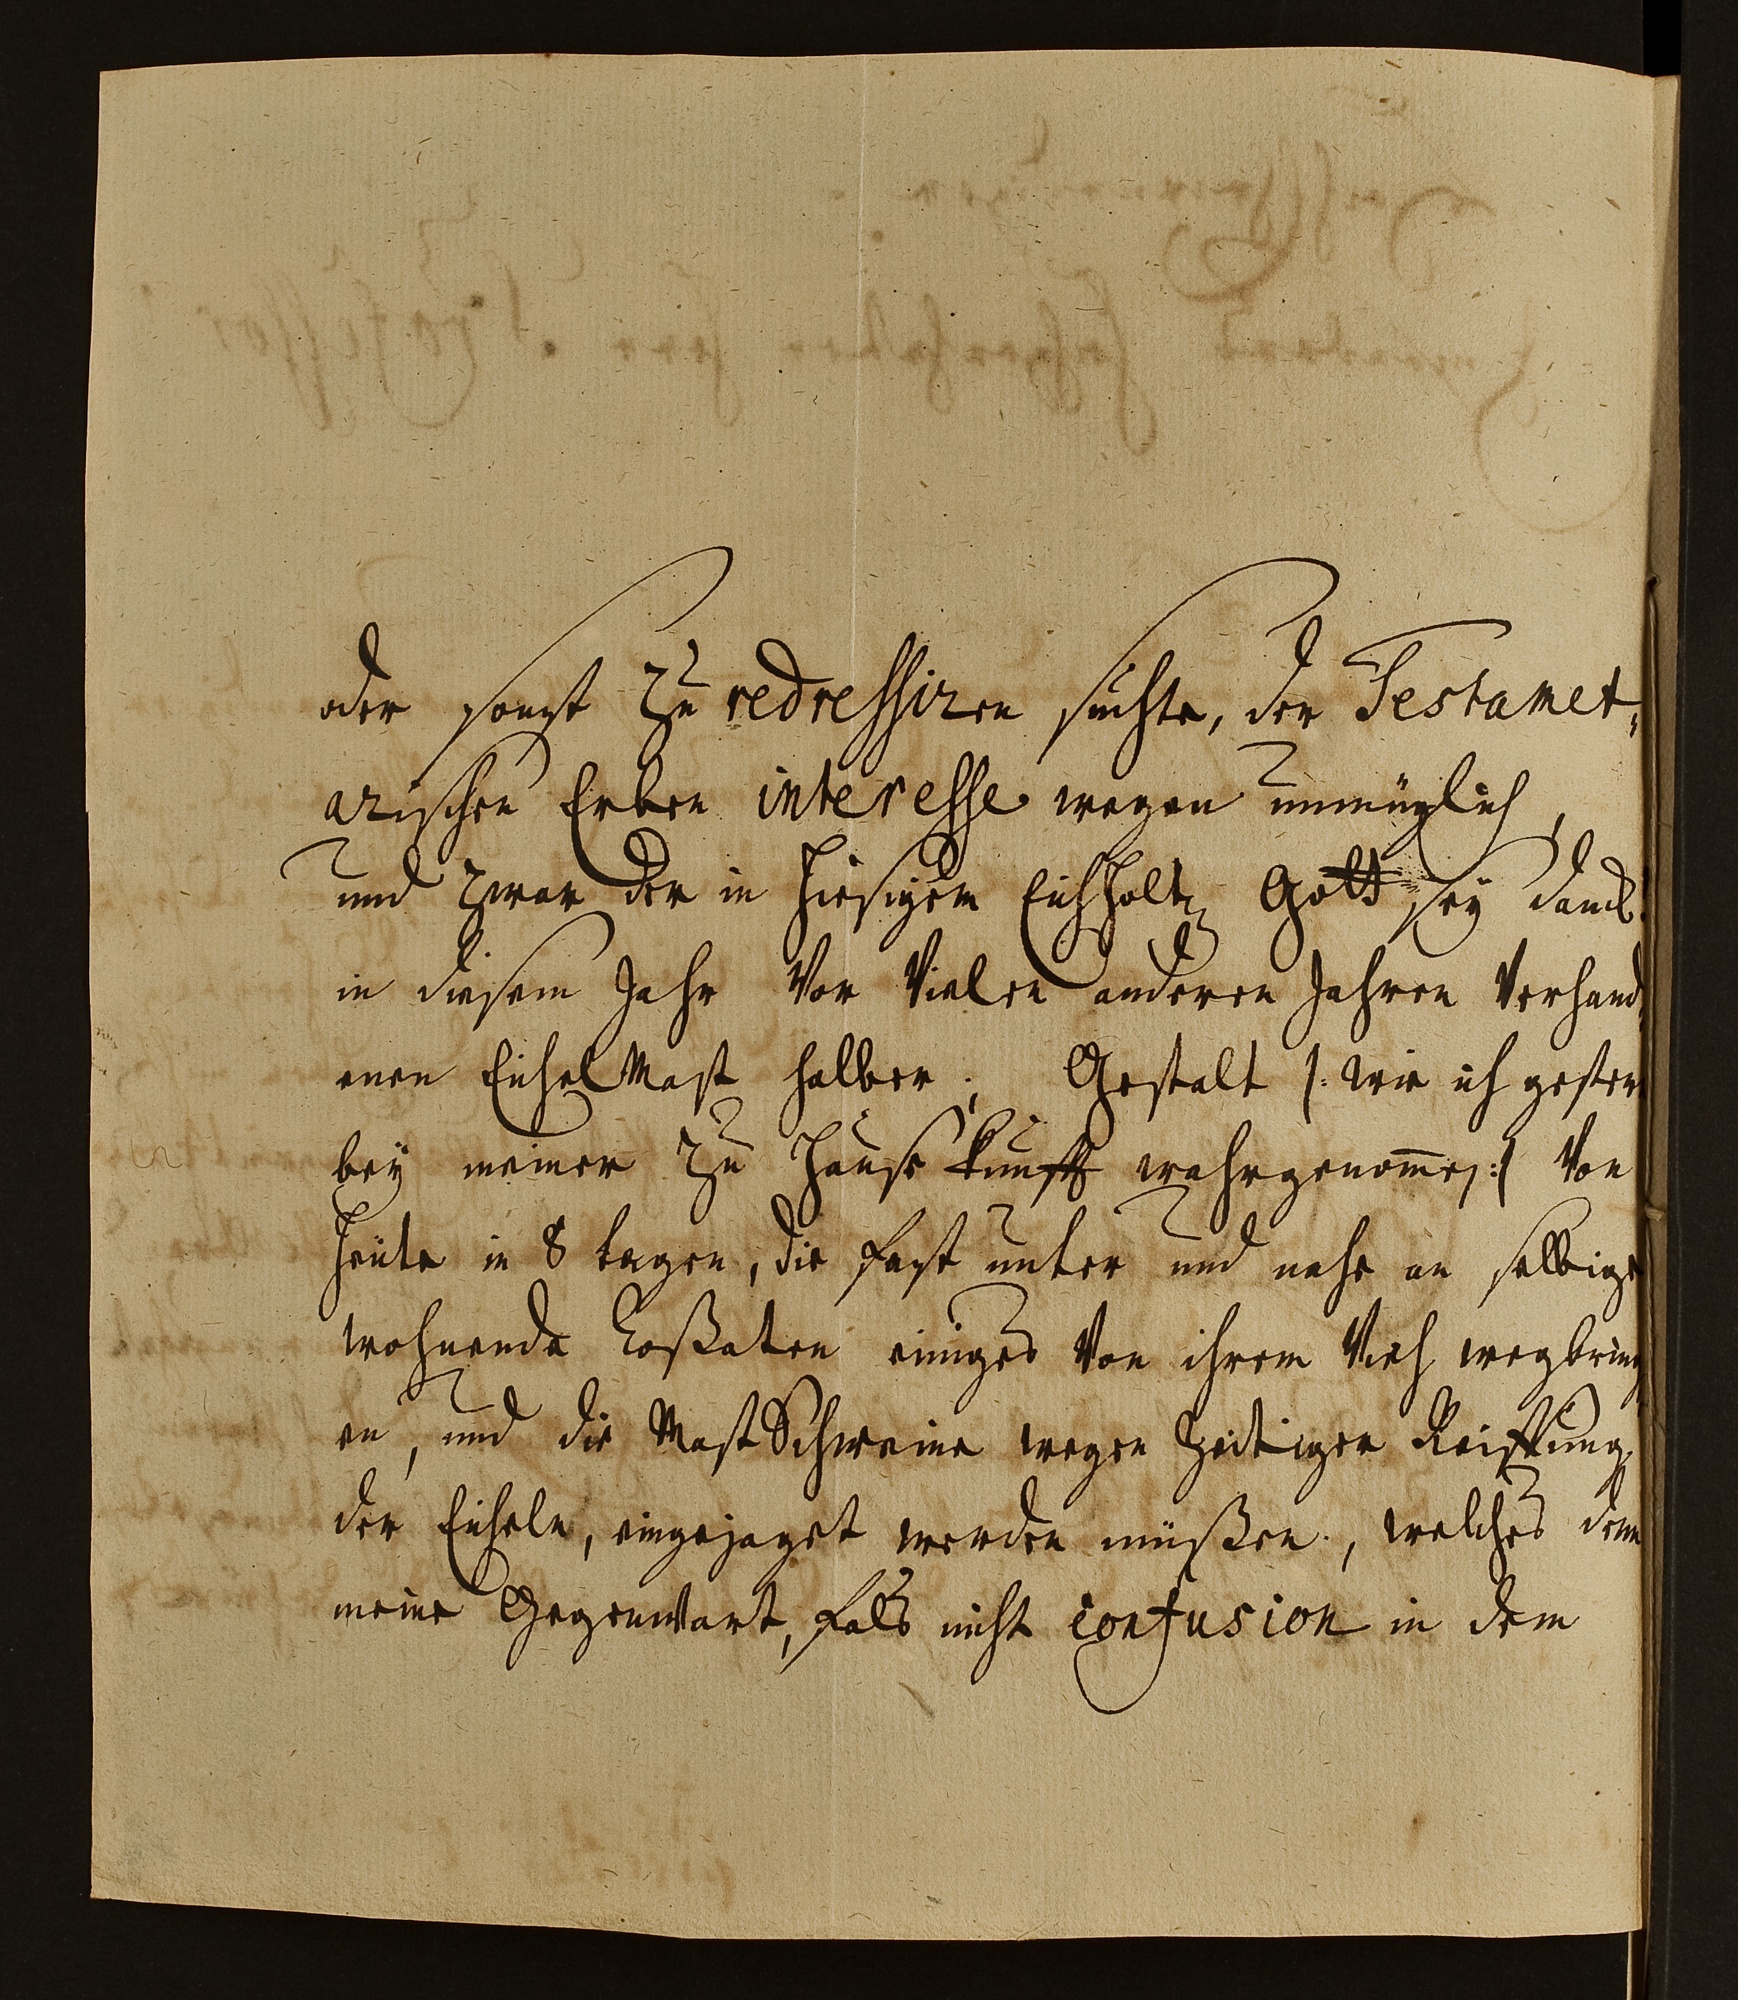 oder sonst zu redressiren suchte, der Testamet„
arischen Erben interesse wegen unmüglich,
und zwar der in hiesigem Eichholtz Gott sey danck
in diesem Jahr vor vielen anderen Jahren verhand
enen EichelMast halber; Gestalt /: wie ich gestern
bey meiner zu Hause kunfft wahrgenom̄en :/ von
heute in 8 tagen, die fast unter und nahe an selbige
wohnende Coßaten einiges von ihrem Vieh wegbring
en, und die MastSchweine wegen zeitiger Reiffung
der Eicheln, eingejaget werden müßen, welches denn
meine Gegenwart, fals nicht confusion in dem